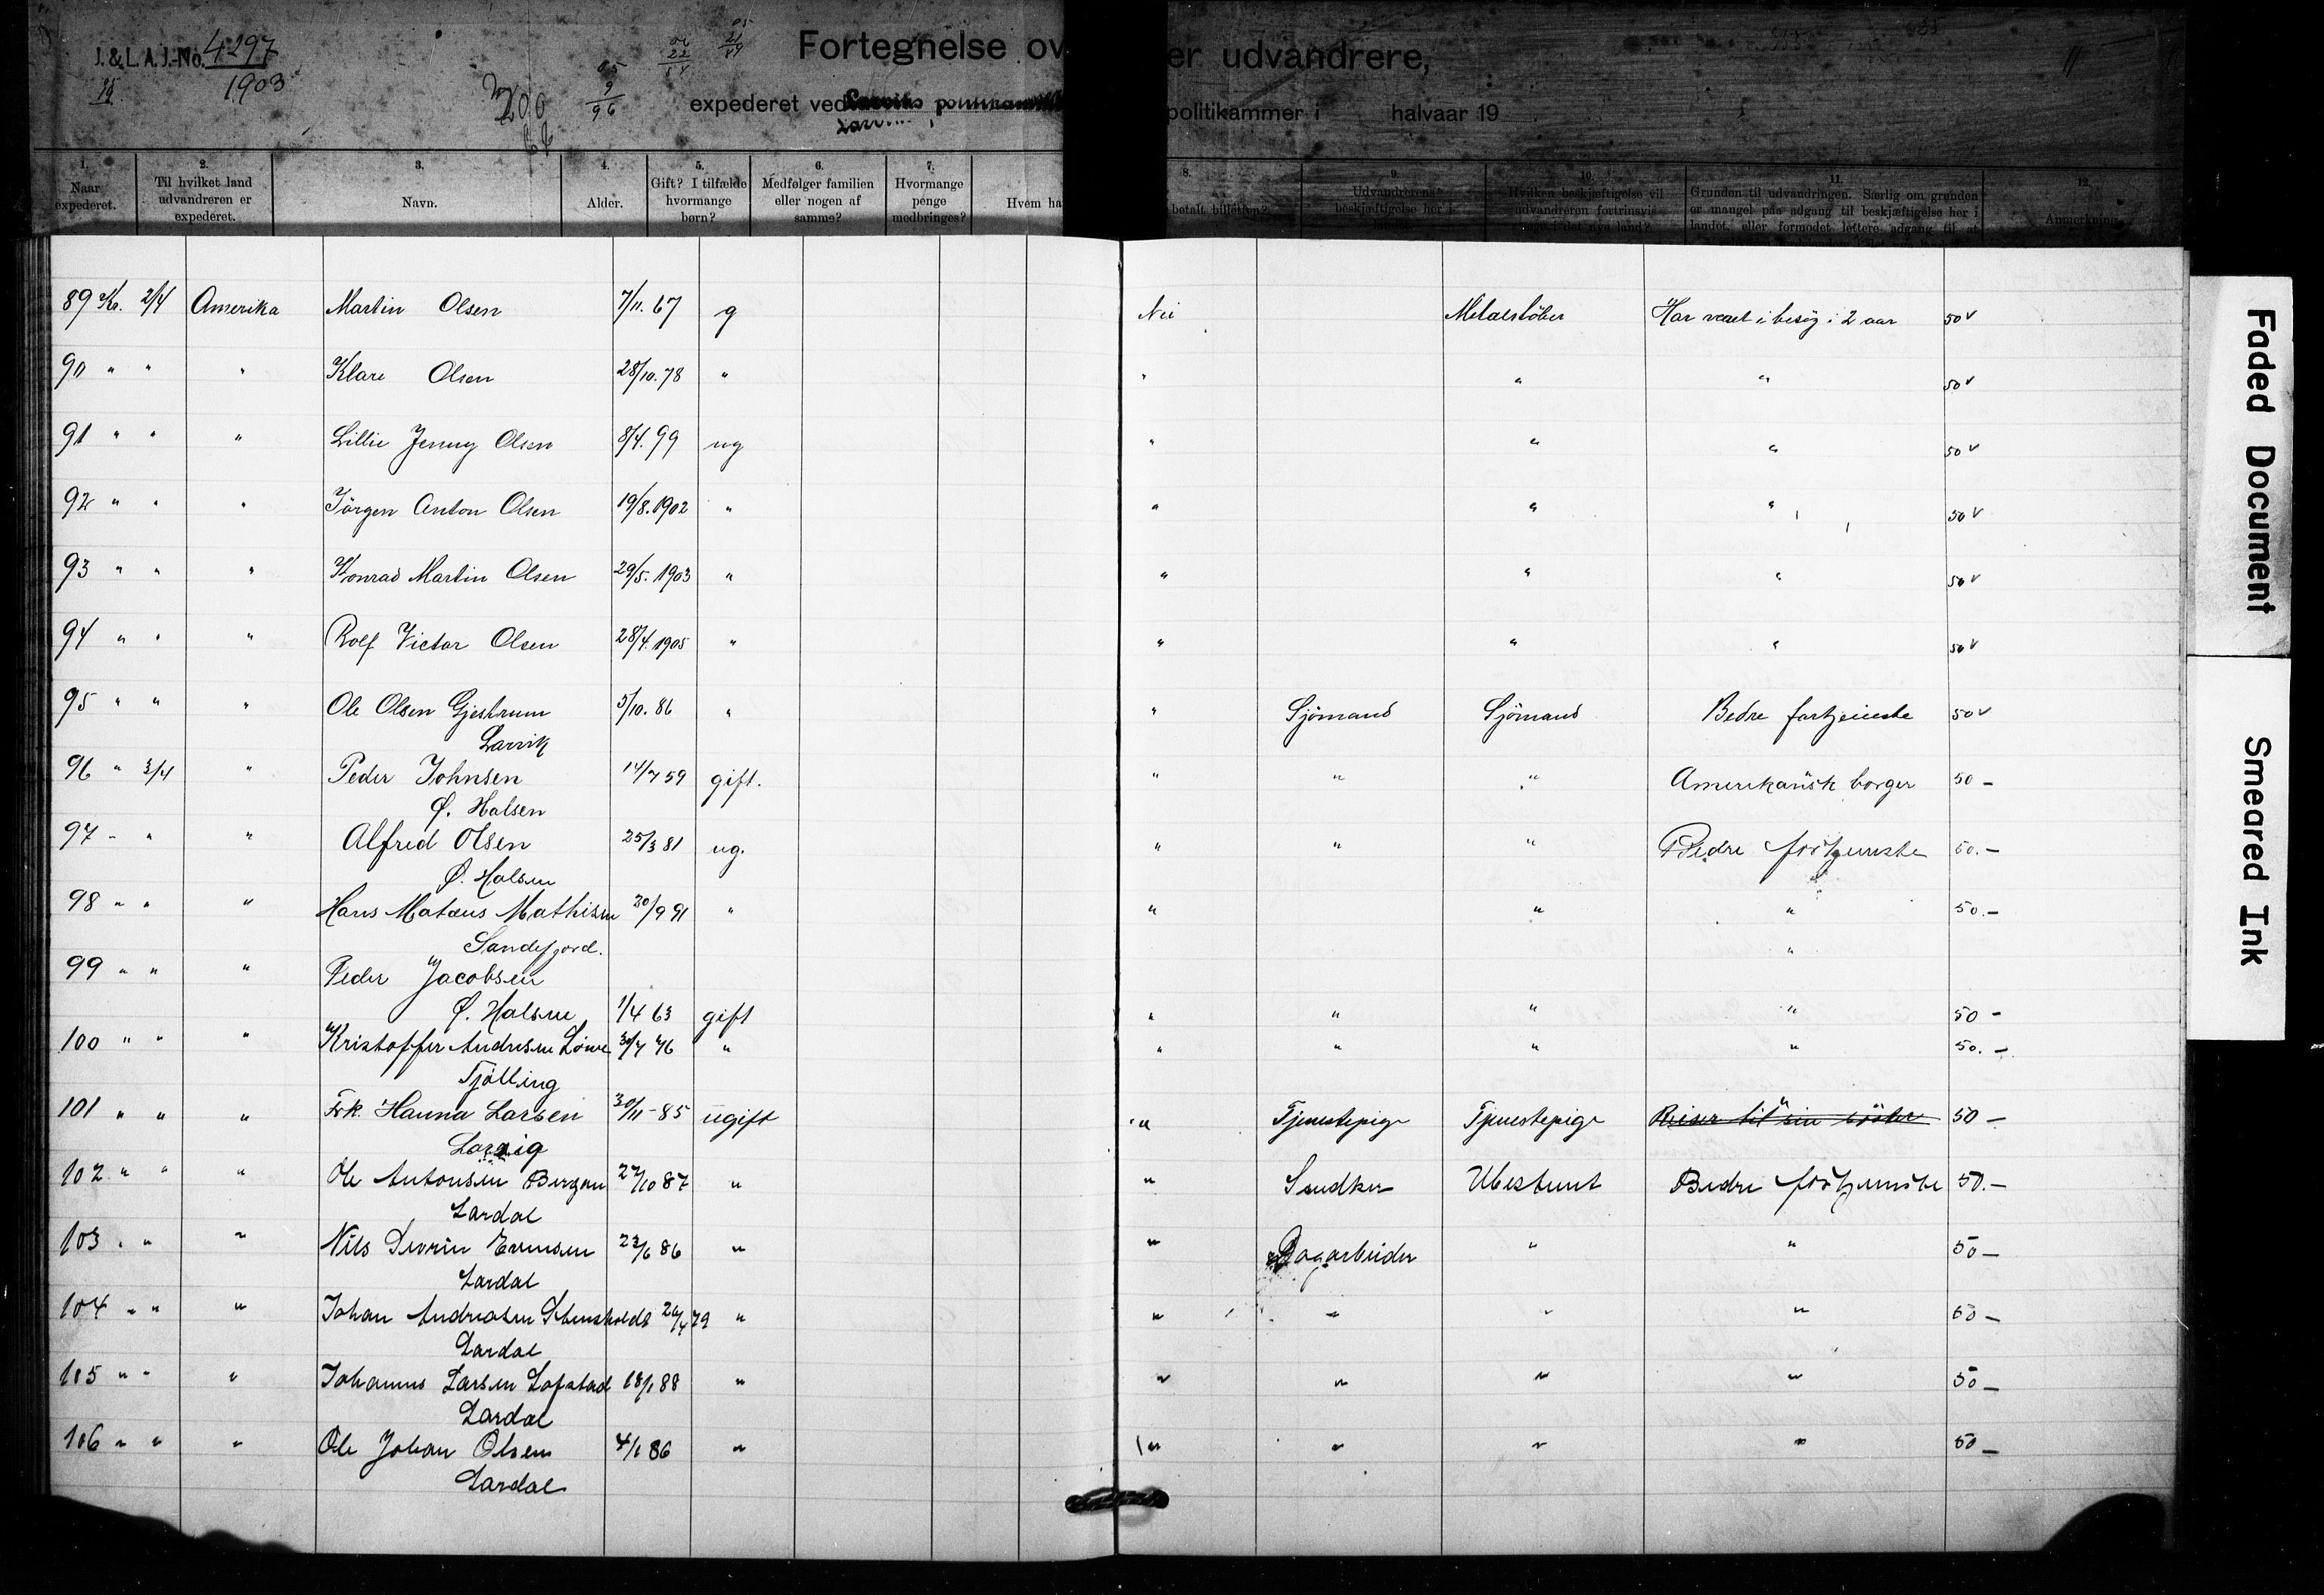 J. & L. A. J.-No. 4297
1903
200
Fortegnelse ov er udvandrere,
expederet ved politikammer i halvaar 19
1. Naar expederet.
2. Til hvilket land udvandreren er expederet.
3. Navn.
4. Alder.
5. Gift? I tilfælde hvormange børn?
6. Medfølger familien eller nogen af samme?
7. Hvormange penge medbringes?
Hvem ha
8. betalt billetten?
9. Udvandrerens beskjæftigelse her i
10. Hvilken beskjæftigelse vil udvandreren fortrinsvis i det nye land?
11. Grunden til udvandringen. Særlig om grunden er mangel paa adgang til beskjæftigelse her i landet, eller formodet lettere adgang til at
12. Anmerkning
89 Kr. 2/4 Amerika Martin Olsen 7/11. 67 g Nei Metalstöber Har været i besög i 2 aar 50 v
90 " " " Klare Olsen 28/10. 78 " " " " 50 v
91 " " " Lillie Jenny Olsen 8/4. 99 ug " " " 50 v
92 " " " Jörgen Anton Olsen 19/8. 1902 " " " " 50 v
93 " " " Konrad Martin Olsen 29/5. 1903 " " " " 50 v
94 " " " Rolf Victor Olsen 28/4. 1905 " " " " 50 v
95 " " " Ole Olsen Gjestrum 5/10. 86 " " Sjömand Sjömand Bedre fortjeneste 50 v
Larvik
96 " 3/4 " Peder Johnsen 14/7 59 gift. " " " Amerikansk borger 50 -
Ø. Halsen
97 " " " Alfred Olsen 25/3 81 ug. " " " Bedre fortjeneste 50. -
Ø. Halsen
98 " " " Hans Matæus Mathisen 20/9 91 " " " " 50. -
Sandefjord. "
99 " " " Peder Jacobsen
Ø. Halsen 1/4 63 gift " " " " 50 -
100 " " " Kristoffer Andresen Løwe 30/7 76 " " " " " 50. -
Tjölling
101 " " " Frk. Hanna Larsen 30/11 - 85 ugift " Tjenestepige Tjenestepige Reiser til sin söster 50 -
Larvig
102 " " " Ole Antonsen Bergan 27/10 87 " " Snedker Ubestemt Bedre fortjeneste 50. -
Lardal
103 " " " Nils Severin Evensen 23/6 86 " " Dagarbeider " " 50 -
Lardal
104 " " " Johan Andreasen Stensholdt 26/4 79 " " " " " 50 -
Lardal
105 " " " Johannes Larsen Lofstad 18/1 88 " " " " " 50 -
Lardal
106 " " " Ole Johan Olsen 4/1 86 " " " " " 50 -
Lardal
Faded Document
Smeared Ink